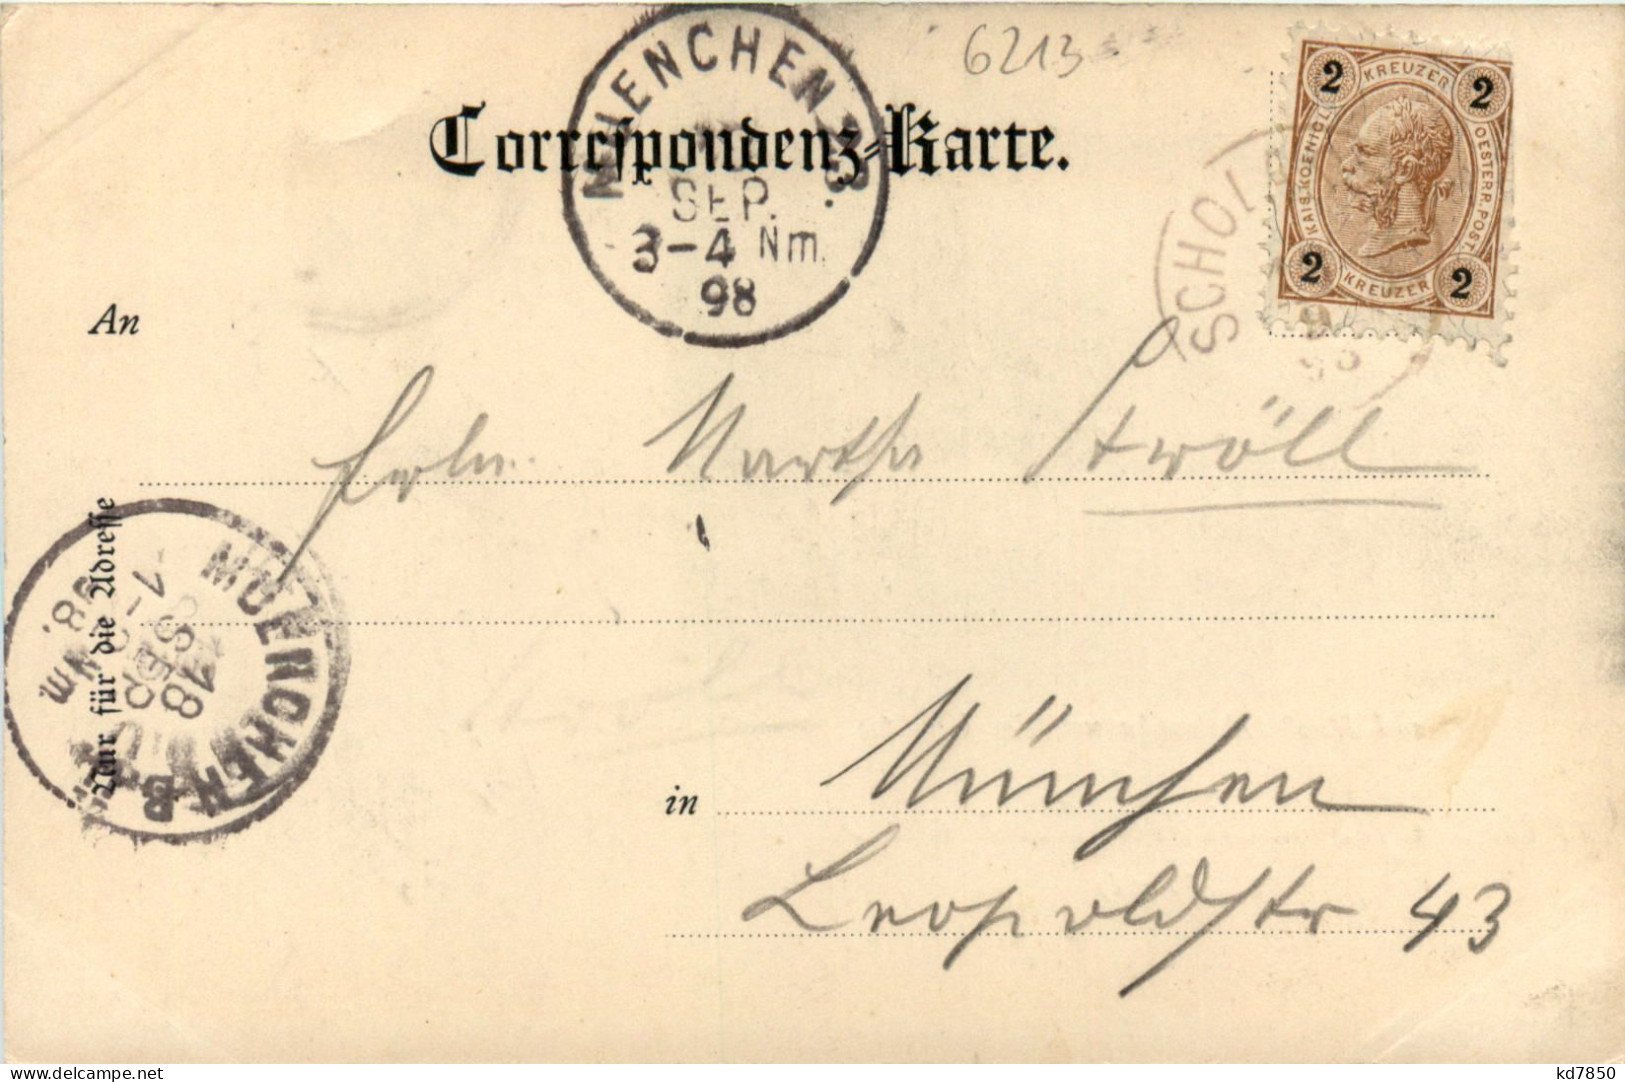 6213
MUENCHEN 23.
SEP.
3-4 Nm.
98
Correspondenz-Karte.
2 KREUZER 2
KAIS. KOENIGL. OESTERR. POST.
2 KREUZER 2
SCHOL
An
Frln. Martha Ströll
Nur für die Adresse
MUENCHEN B.
18
SEP
Nm.
98.
in München
Leopoldstr 43
delcampe.net
kd7850